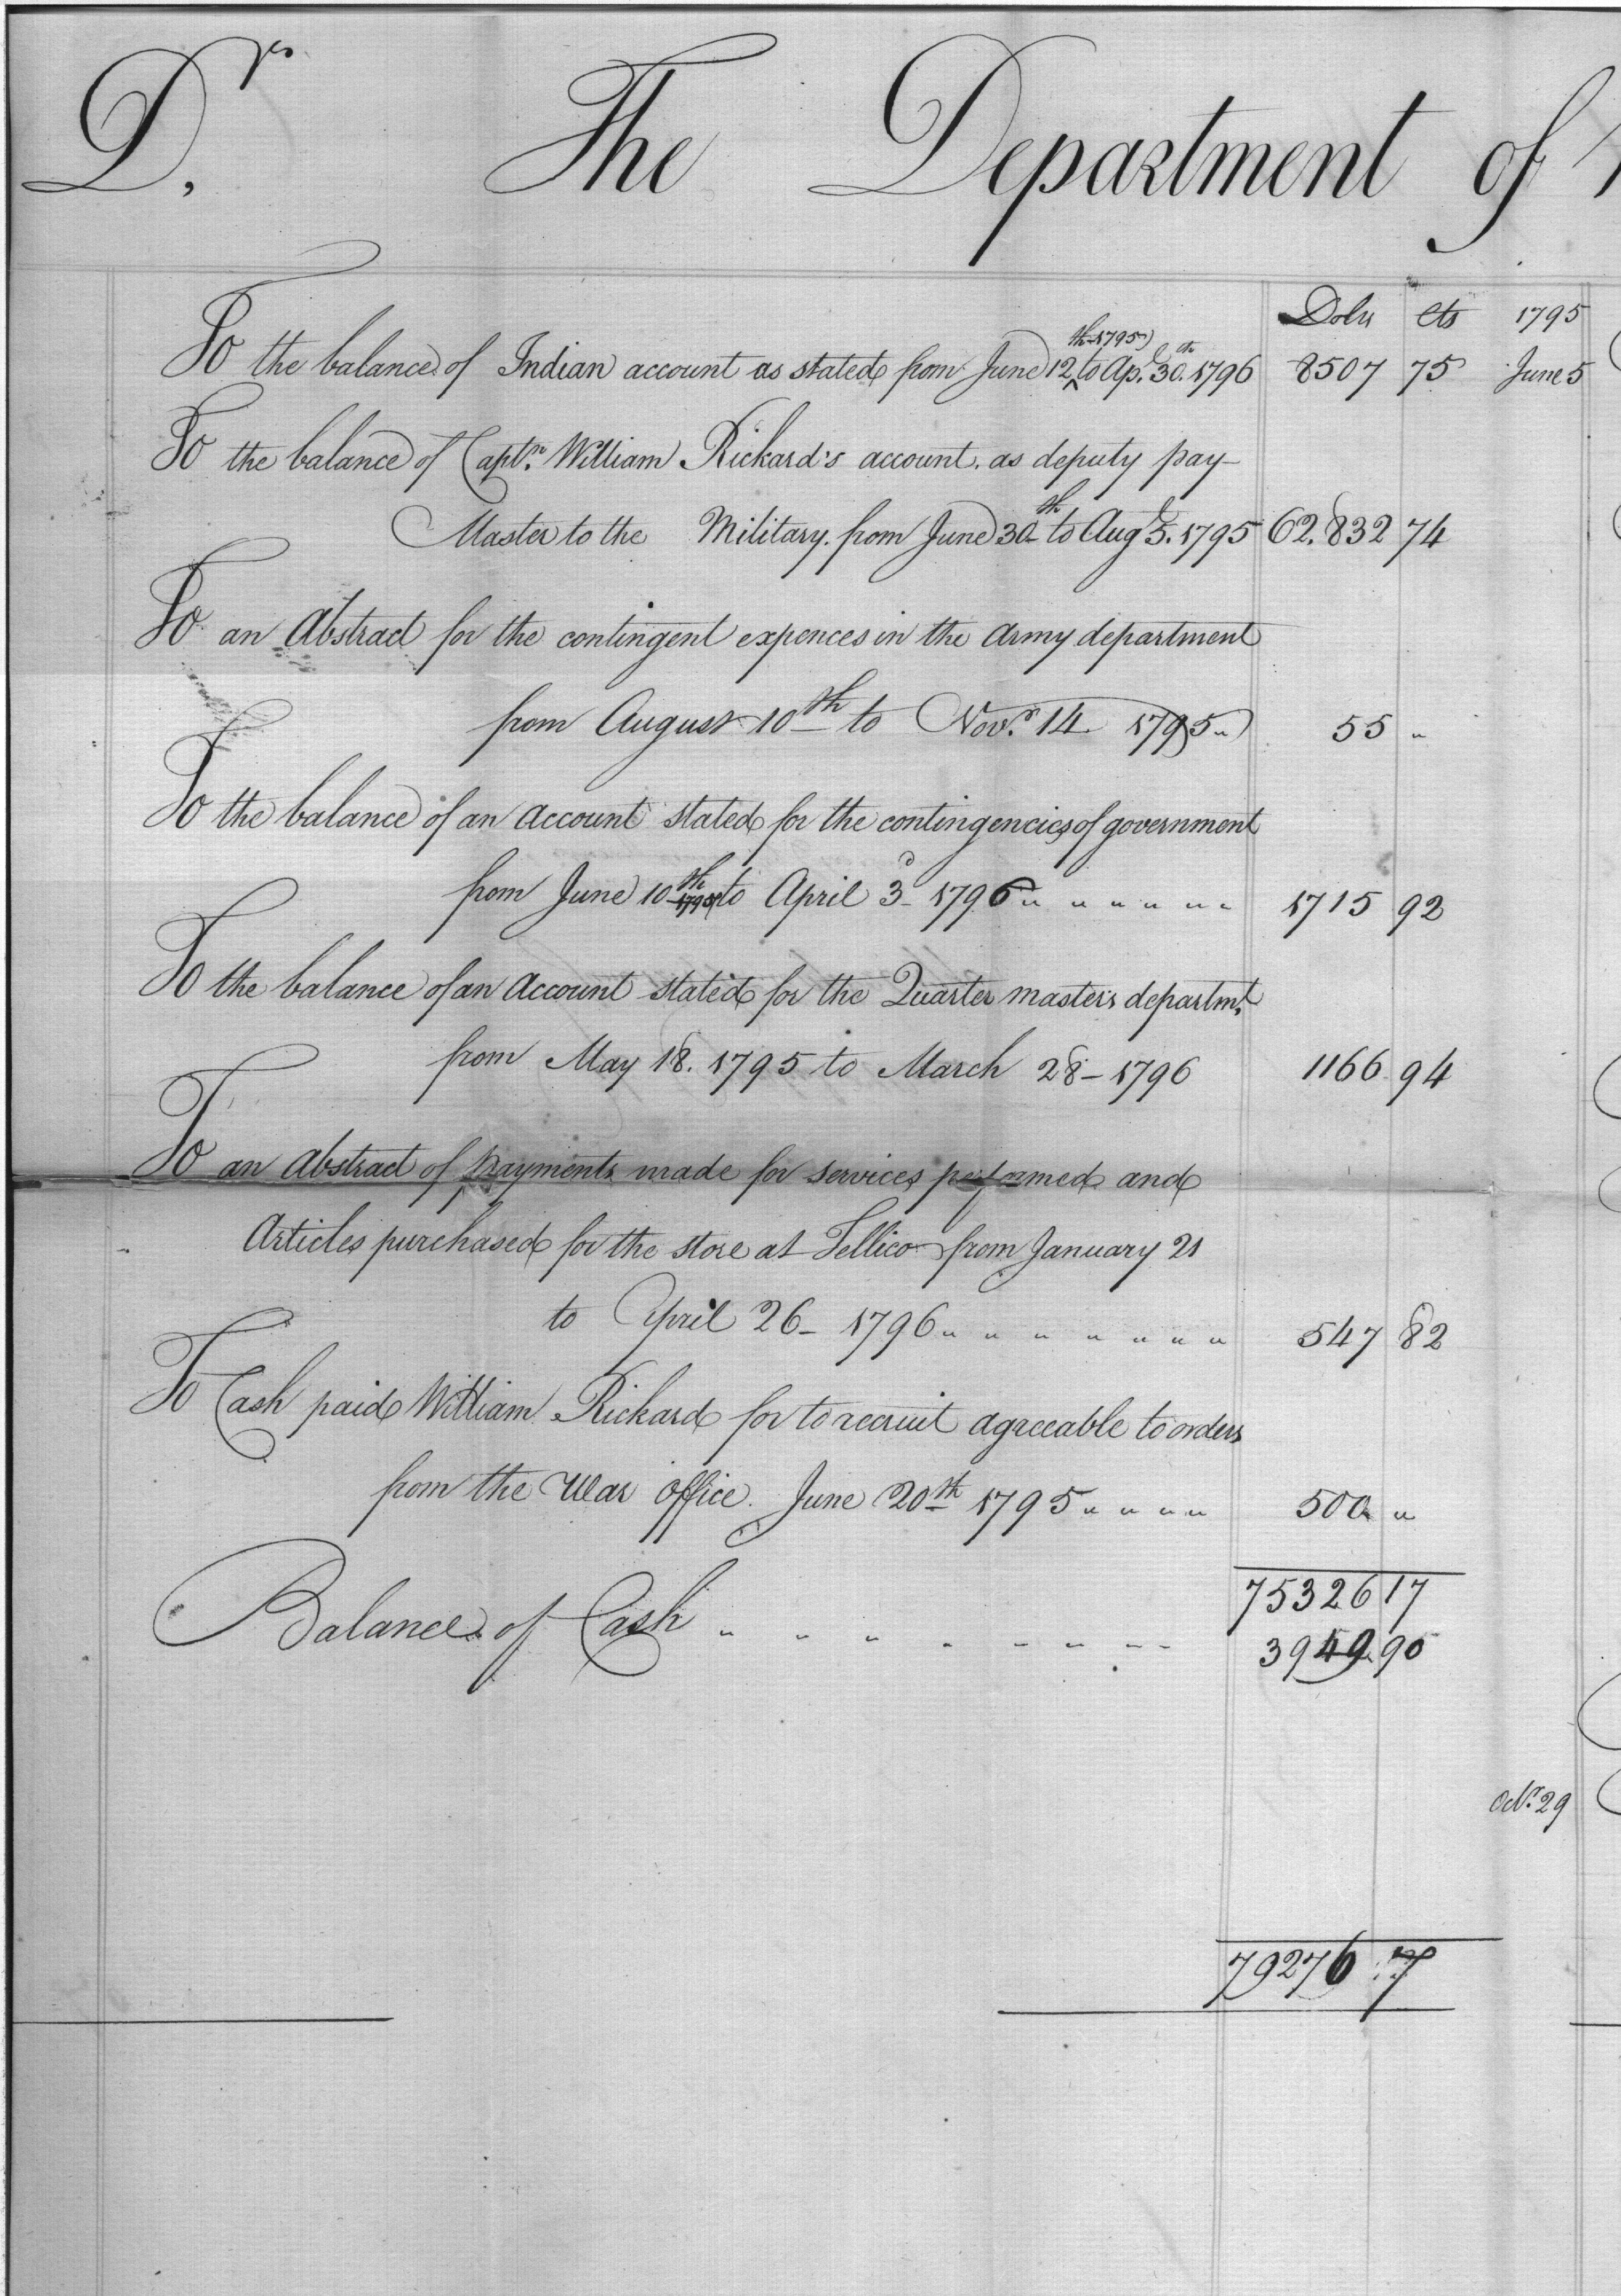 Dr. The Department of
Dolrs cts 1795
To the balance of Indian account as stated from June 12th 1795 to Apl. 30th 1796 8507 75 June 5
To the balance of Captn. William Rickard's account. as deputy pay-
Master to the Military. from June 30th to Augt 5. 1795 62.832 74
To an Abstract for the contingent expences in the Army department
from August 10th to Novr. 14 1795 " 55 "
To the balance of an Account stated for the contingencies of government
from June 10th 1795 to April 3d 1796 " " " " " " 1715 92
To the balance of an Account stated for the Quarter master's departmt.
from May 18. 1795 to March 28 - 1796 1166 94
To an Abstract of payments made for services performed and
Articles purchased for the store at Tellico from January 21
to April 26 - 1796 " " " " " " " 547 82
To Cash paid William Rickard for to recruit agreeable to orders
from the War Office. June 20th 1795 " " " " 500 "
75326 17
Balance of Cash " " " " " " " " 3949 90
Octr. 29
79276 7